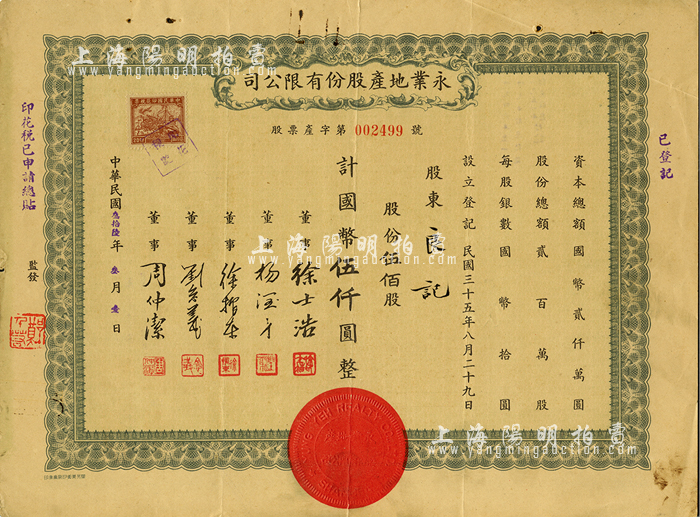 上海陽明拍賣
www.yangmingauction.com
永業地產股份有限公司
股票產字第 002499 號
已登記
資本總額國幣貳仟萬圓
股份總額貳百萬股
每股銀數國幣拾圓
設立登記 民國三十五年八月二十九日
股東 良記
股份伍佰股
計國幣伍仟圓整
董事 徐士浩
董事
董事
董事
董事 周仲潔
中華民國叁拾陸年 叁月 壹日
印花稅已申請總貼
監發
YEH REALTY CO
上海陽明拍賣
www.yangmingauction.com
上海陽明拍賣
www.yangmingauction.com
上海陽明拍賣
www.yangmingauction.com